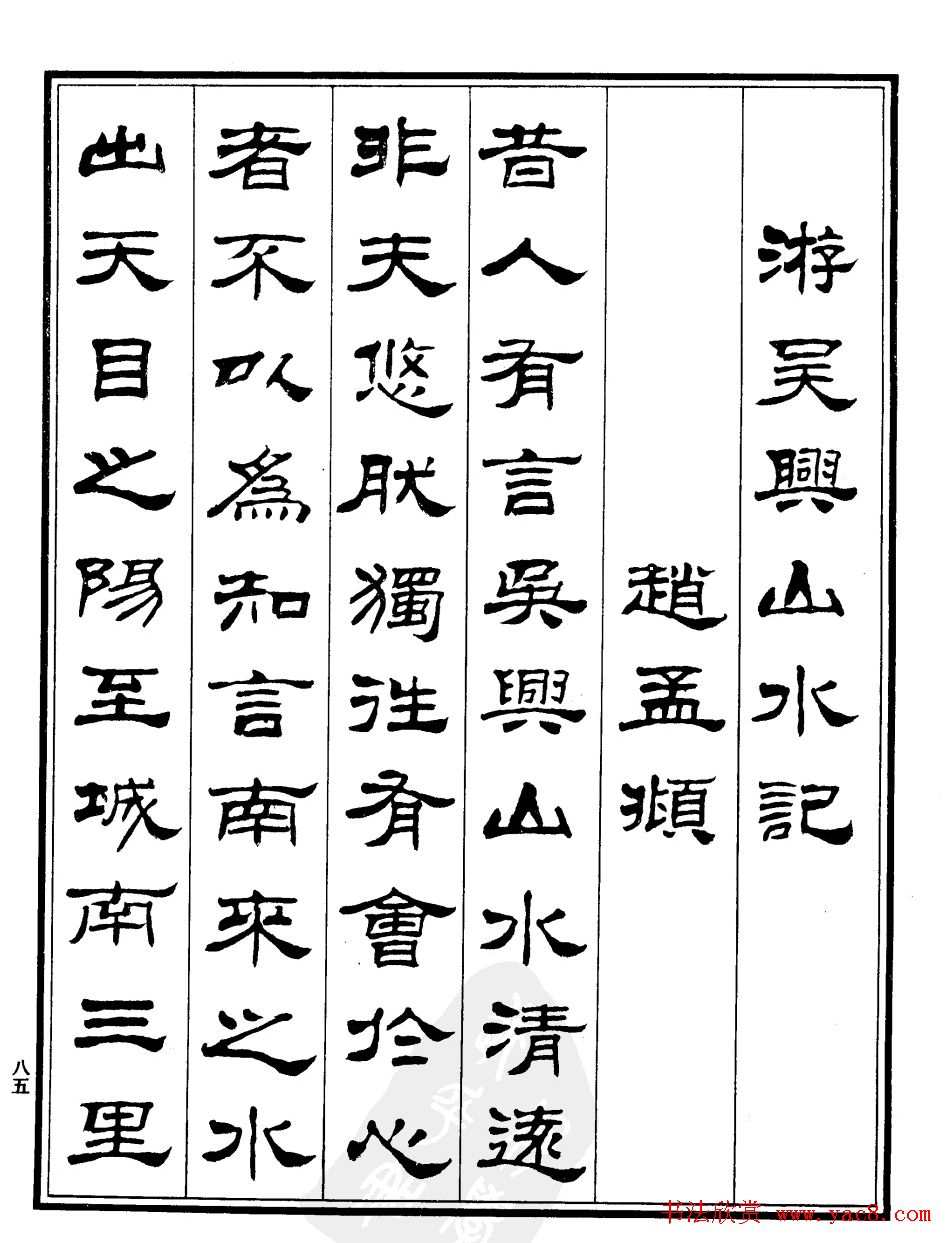 游吳興山水記
趙孟頫
昔人有言吳興山水清遠
非夫悠肰獨往有會於心
者不以爲知言南來之水
出天目之陽至城南三里
八五
书法欣赏 www.yac8.com